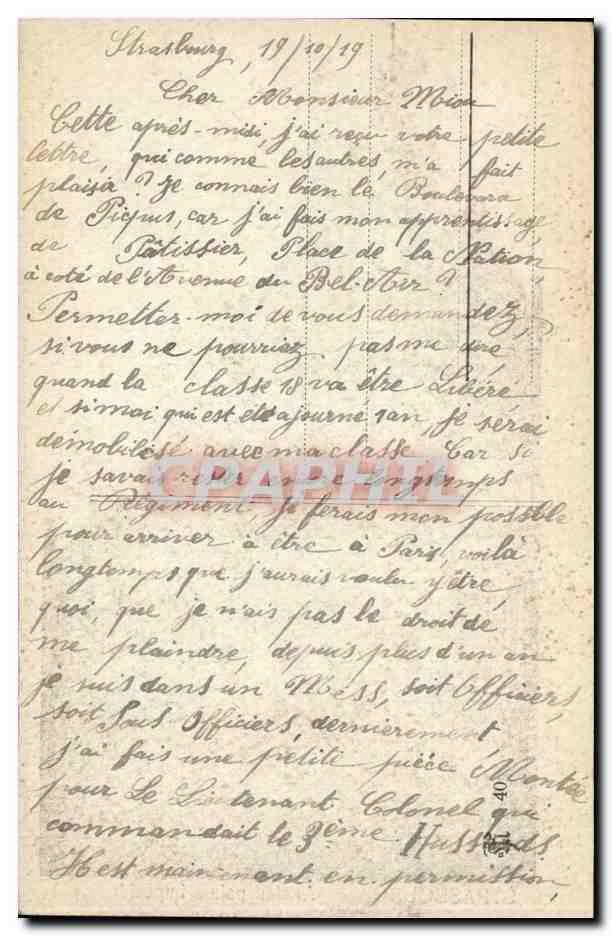 Strasbourg, 19/10/19
Cher Monsieur Miou
Cette après-midi, j'ai reçu votre petite
lettre, qui comme les autres, m'a fait
plaisir? Je connais bien le Boulevard
de Picpus, car j'ai fais mon apprentissage
de Pâtissier, Place de la Nation,
à coté de l'Avenue du Bel-Air?
Permetter-moi de vous demandez,
si vous ne pourriez pas me dire
quand la classe 18 va être Libéré
et si moi qui est été ajourne 1 an, je serai
démobilisé avec ma classe. Car si
je savais rester encore longtemps
au Régiment, je ferais mon possible
pour arriver à être à Paris, voilà
longtemps que j'aurais voulu y être,
quoi, que je n'ais pas le droit de
me plaindre, depuis plus d'un an
je suis dans un Mess, soit Officiers,
soit Sous-Officiers, dernièrement
j'ai fais une petite pièce Montée
pour Le Lieutenant Colonel qui
commandait le 3ème Hussards
Il est maintenant en permission,
40
CPAPHIL